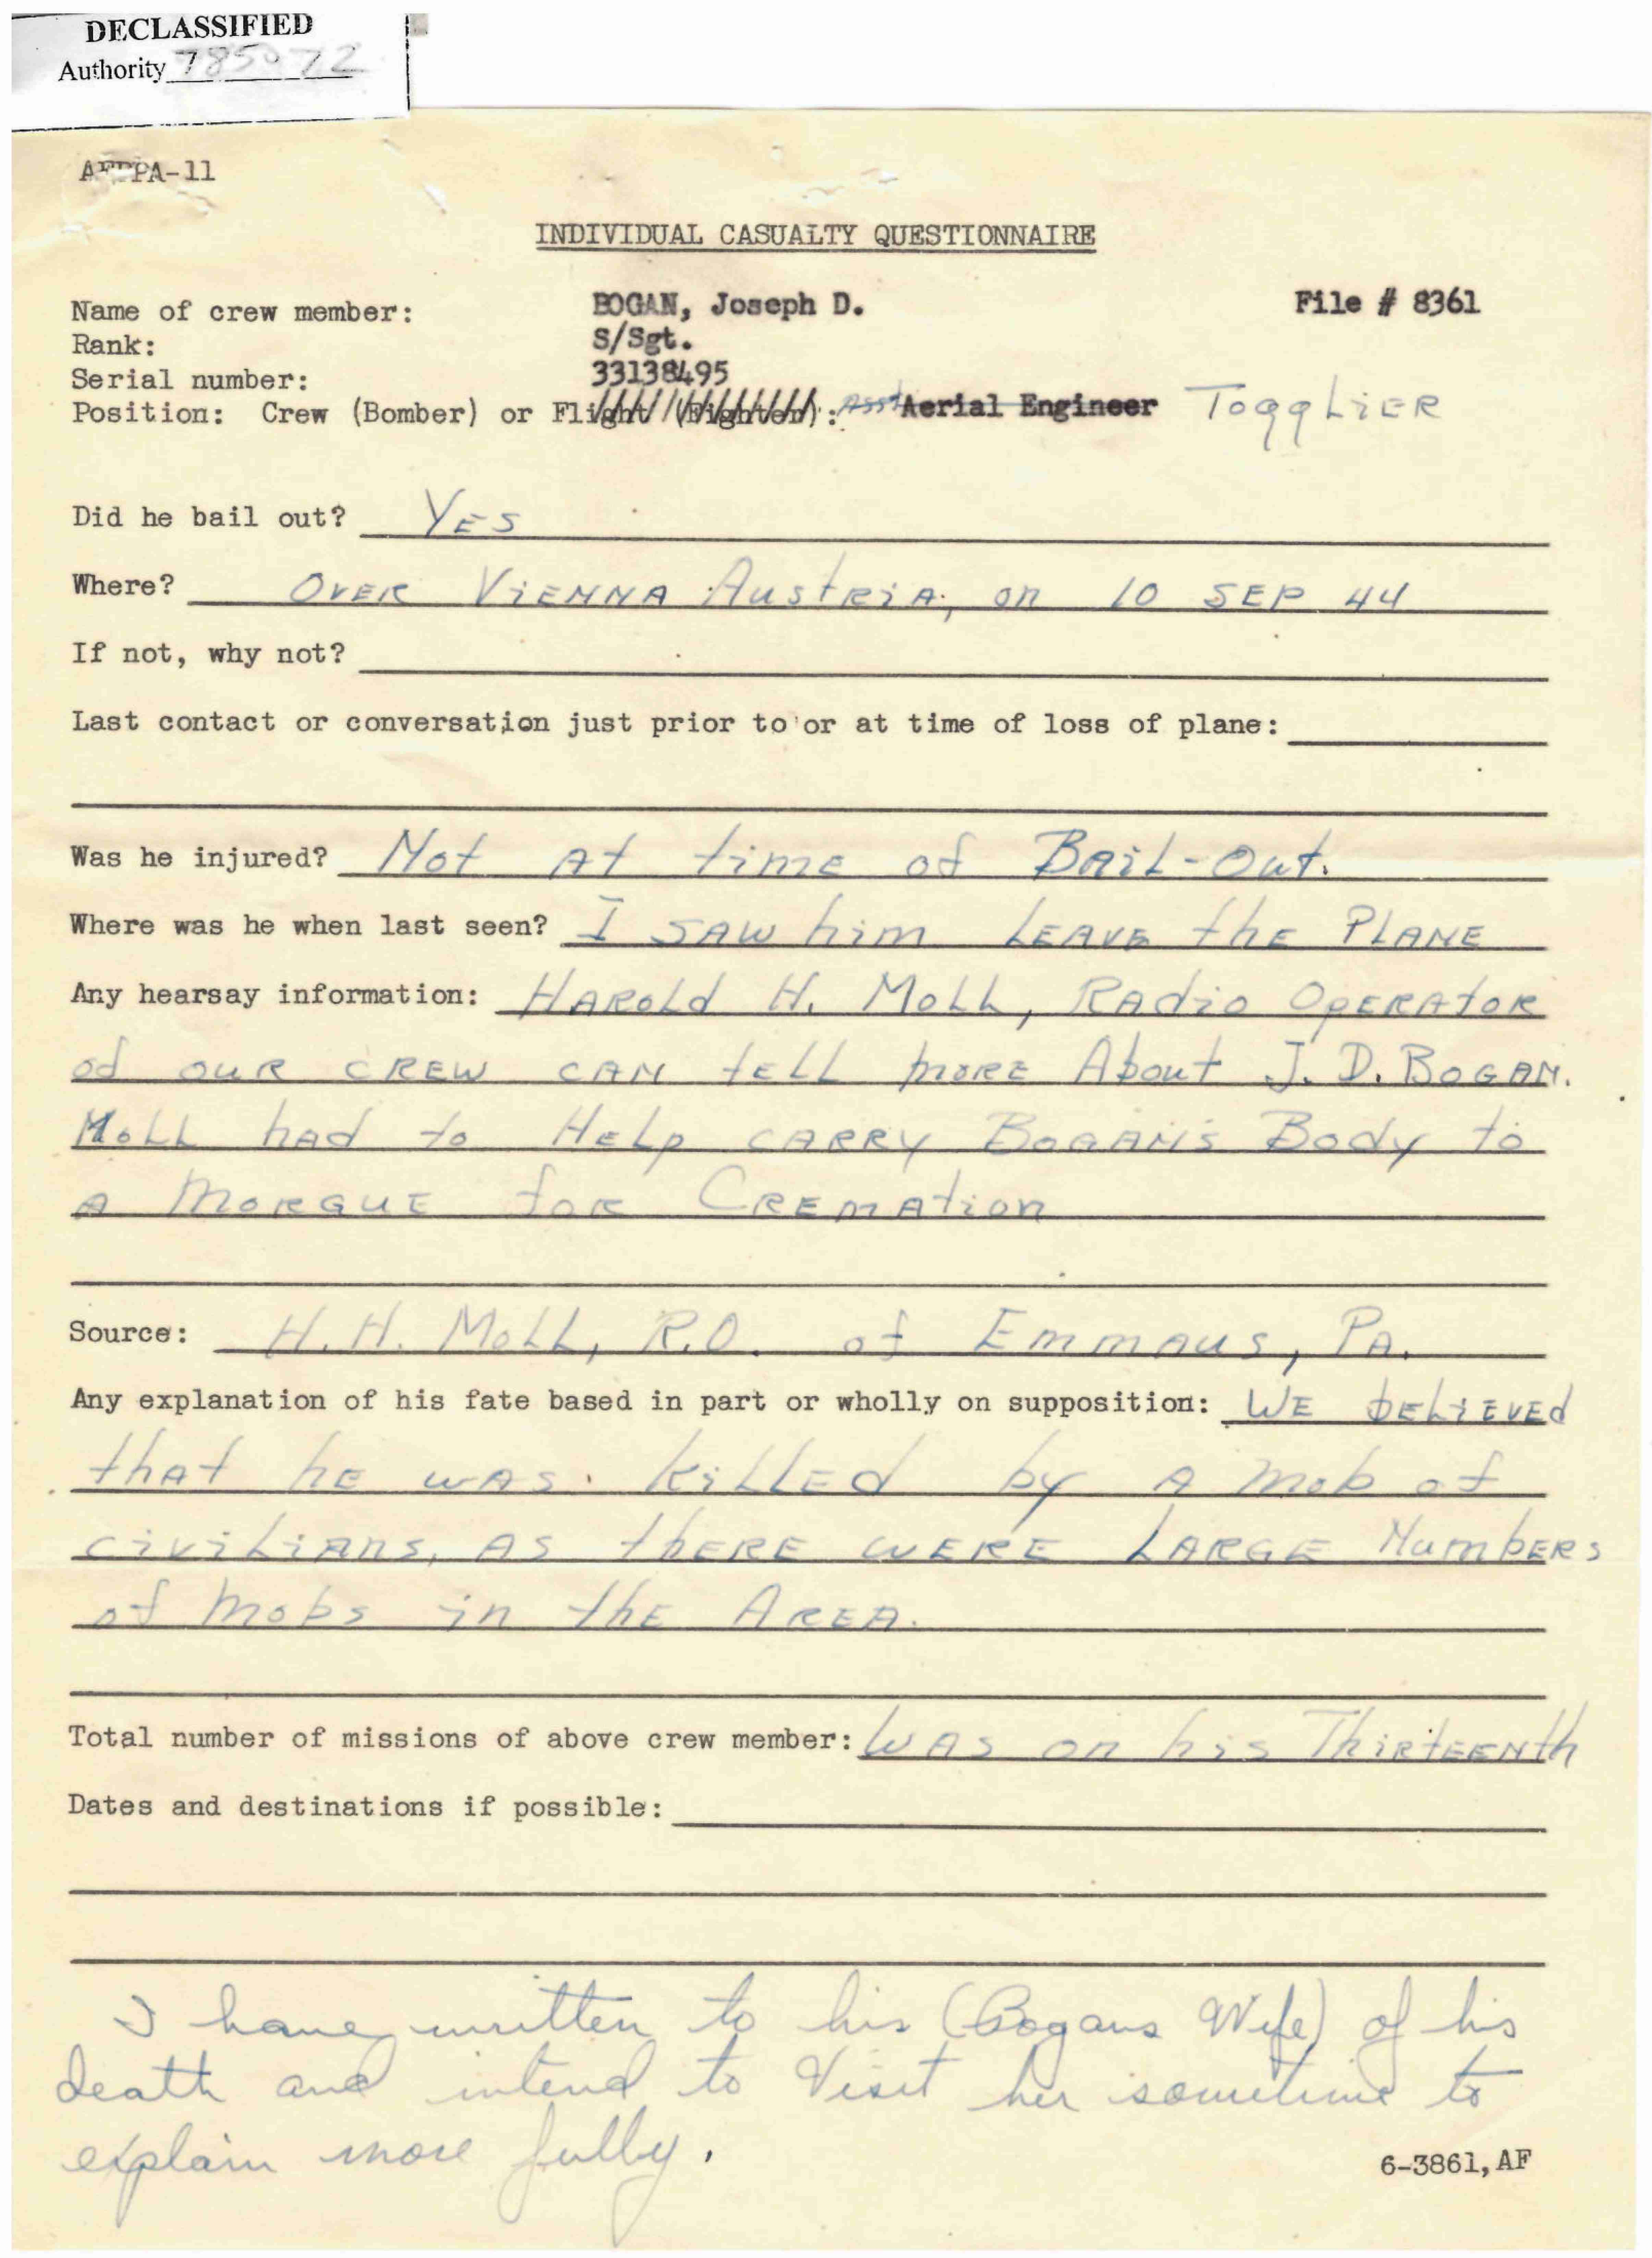 DECLASSIFIED
Authority 785072
AFPPA-11
INDIVIDUAL CASUALTY QUESTIONNAIRE
Name of crew member: BOGAN, Joseph D. File # 8361
Rank: S/Sgt.
Serial number: 33138495
Position: Crew (Bomber) or Flight (Fighter): Asst Aerial Engineer TOGGLIER
Did he bail out? YES
Where? OVER VIENNA AUSTRIA, on 10 SEP 44
If not, why not?
Last contact or conversation just prior to or at time of loss of plane:
Was he injured? Not At time of Bail-Out.
Where was he when last seen? I SAW him LEAVE the PLANE
Any hearsay information: HAROLD H. MOLL, RADio OPERAtOR
of OUR CREW CAN tELL moRE About J. D. BOGAN.
MOLL had to HELp CARRY BOGAN's Body to
A MORGUE foR CREMAtion
Source: H. H. MOLL, R.O. of Emmaus, PA.
Any explanation of his fate based in part or wholly on supposition: WE bELiEVEd
that hE wAS killEd by A mob of
civiliAns, AS thERE WERE LARGE NumbERs
of mobs in thE AREA.
Total number of missions of above crew member: WAS on his ThiRtEENth
Dates and destinations if possible:
I have written to his (Bogans Wife) of his
death and intend to Visit her sometime to
explain more fully.
6-3861, AF